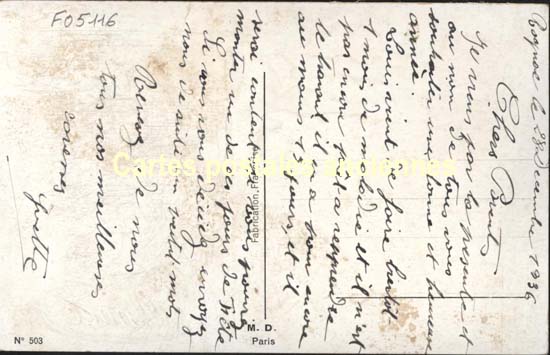 F05116
le 28 Décembre 1936
Chers Parents
Je viens par la présente et
au nom de tous vous
souhaiter une bonne et heureuse
année.
Louis vient de faire
1 mois de maladie et il n'est
pas encore prêt a reprendre
le travail il a pour encore
au moins jours et il
serai content si vous pouvez
monter un de ces jours de fête
Si vous vous décidez envoyez
nous de suite un petit mot
Recevez de nous
tous nos meilleures
caresses
Yvette
Cartes postales anciennes
Fabrication Française
M. D.
Paris
N° 503